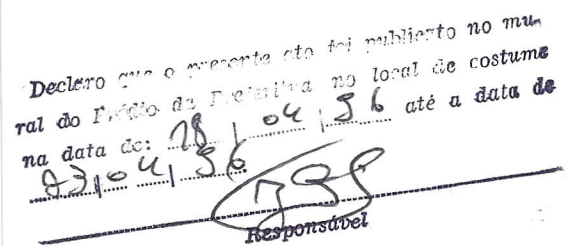 Declaro que o presente ato foi publicato no mu-
ral do Prédio da Prefeitura no local de costume
na data de: 18, 04, 96 até a data de
23, 04, 96
Responsável